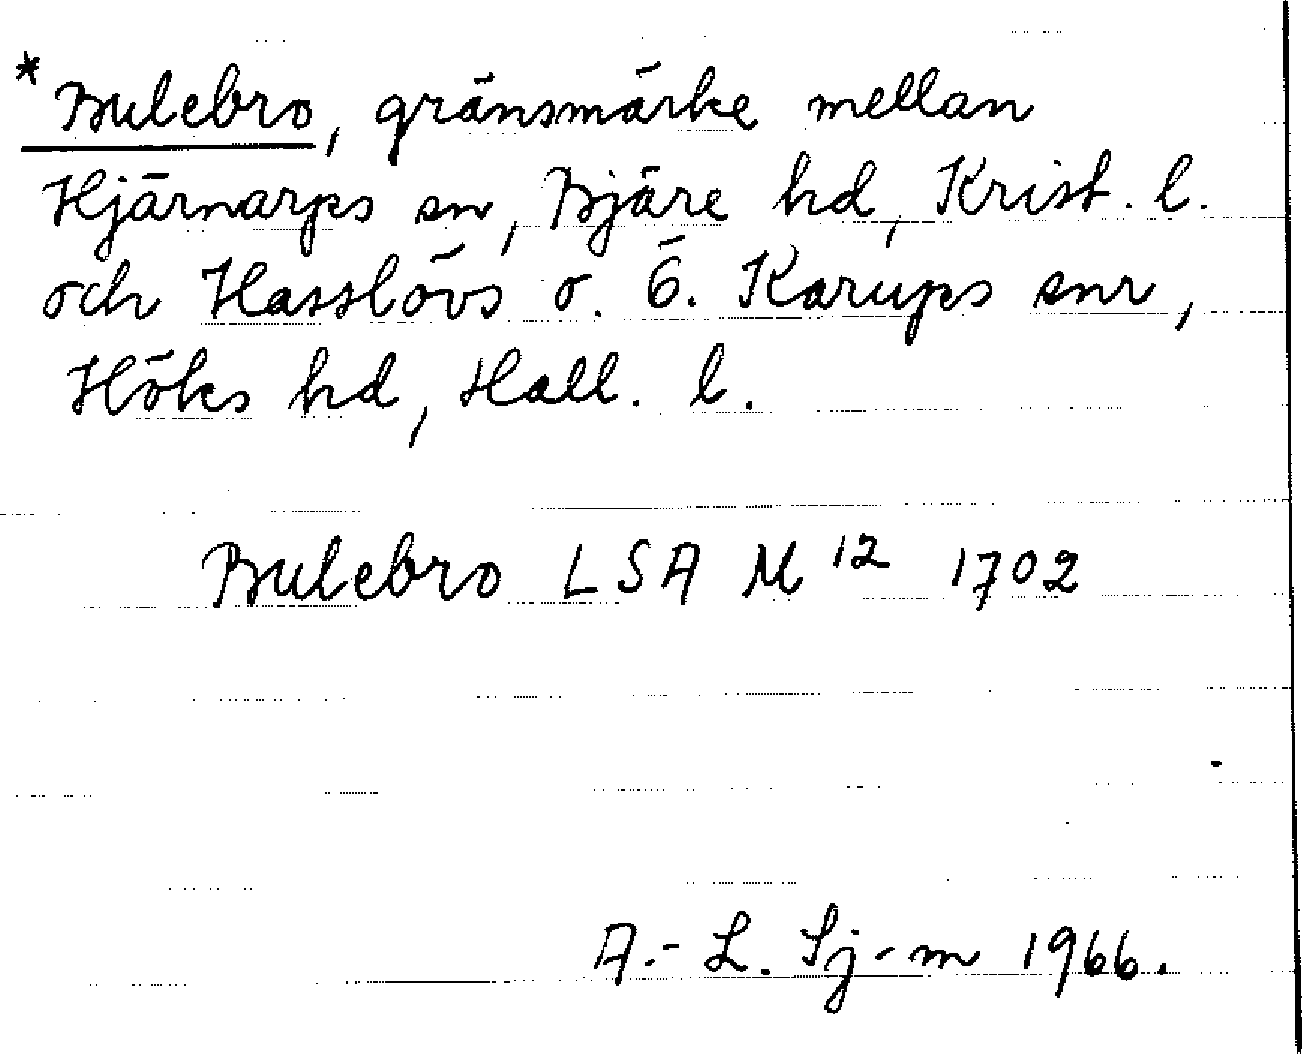 *Bulebro, gränsmärke mellan
Hjärnarps sn, Bjäre hd, Krist. l.
och Hasslövs o. Ö. Karups snr,
Höks hd, Hall. l.
Bulebro LSA M 12 1702
A.-L. Sj-m 1966.